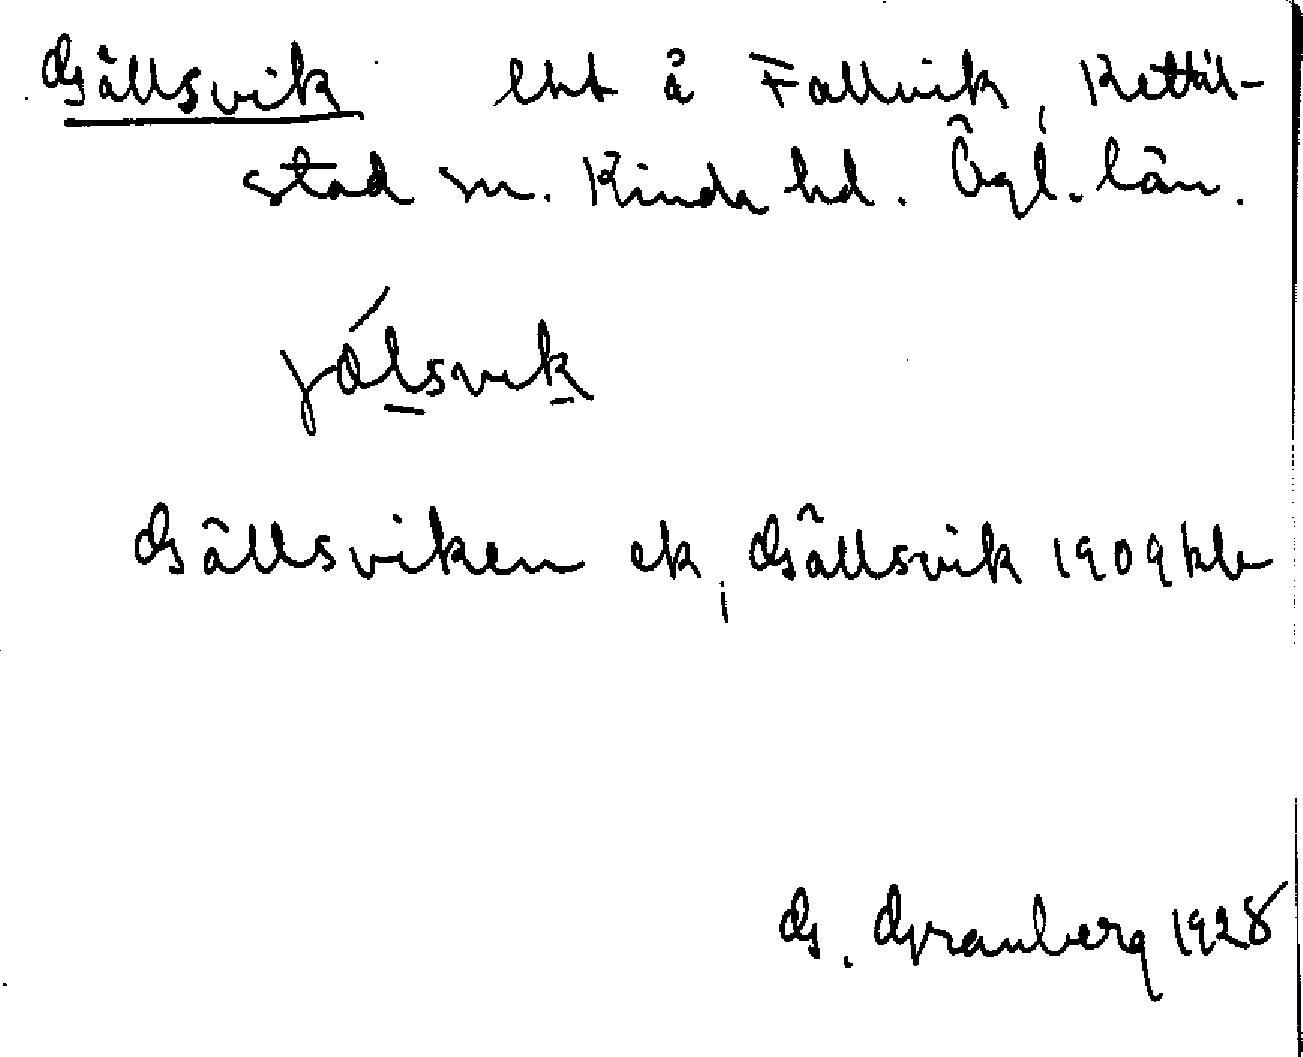 Gällsvik lht å Fallvik, Kettil-
stad sn. Kinda hd. Ögl. län.
jálsvik
Gällsviken ek, Gällsvik 1909 kb
G. Granberg 1928